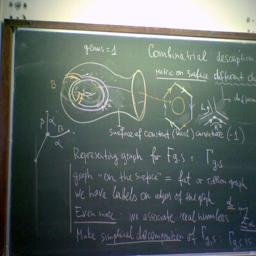 genus = 1
Combinatrial description
metric on surface different
B
surface of constant (neg) curvature (-1)
α
B
α
Representing graph for Γg,s : Γg,s
graph "on the surface" = fat or ribbon graph
we have labels on edges of the graph
Even more : we associate real numbers
Make simplicial decomposition of Γg,s :